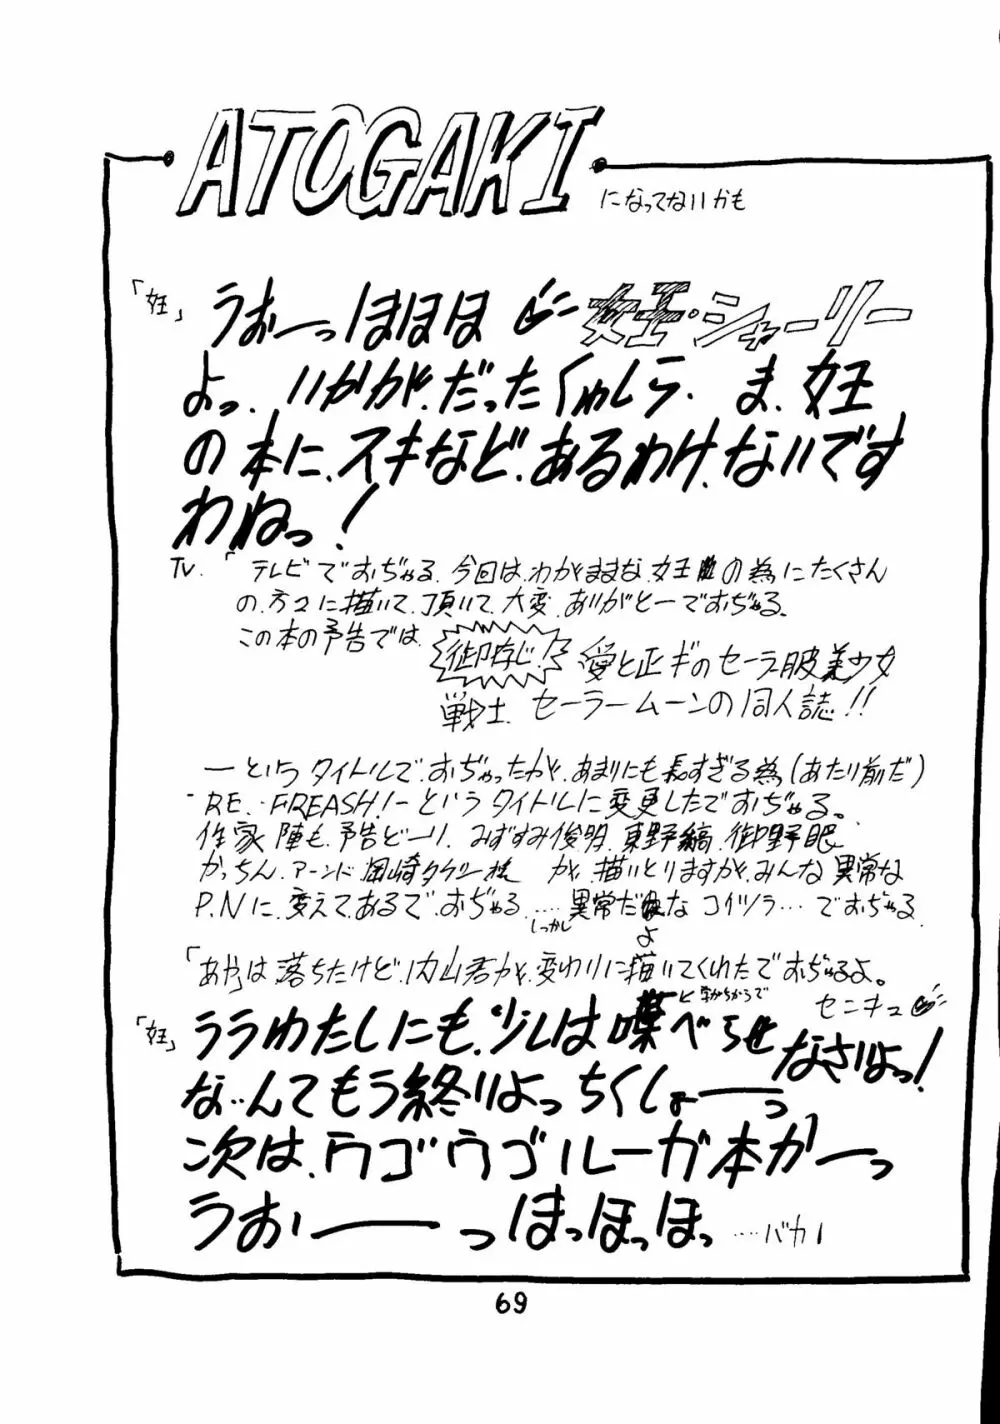 ATOGAKI
になってないかも
「女王」うおーっほほほ 女王・シャーリー
よっ.いかがだったくゎしら.ま.女王
の本に.スキなど.あるわけ.ないです
わねっ!
TV.「テレビでおぢゃる.今回は.わがままな.女王の為にたくさん
の.方々に描いて.頂いて.大変.ありがとーでおぢゃる.
この本の予告では.
御存じ! 愛と正ギのセーラー服美少女
戦士.セーラームーンの同人誌!!
ーというタイトルで.おぢゃったが.あまりにも長すぎる為(あたり前だ)
RE.FREASH!ーというタイトルに変更したでおぢゃる。
作家陣も.予告どーり.みずすみ俊明.東野縞.御野眼
かっちん.アーンド.岡崎タケシ様 が.描いとりますが.みんな異常な
P.Nに.変えてあるで.おぢゃる....しっかし異常だよなコイツラ...でおぢゃる
「あやは落ちたけど.内山君が.変わりに描いてくれたでおぢゃるよ。
「女王」ララわたしにも.少しは喋べらせなさいよっ!
と.あちからで
セニキュ
な..んてもう終りよっちくしょーーっ
次は.ウゴウゴルーガ本かーっ
うおーーっほっほっほっ ....バカ!
69